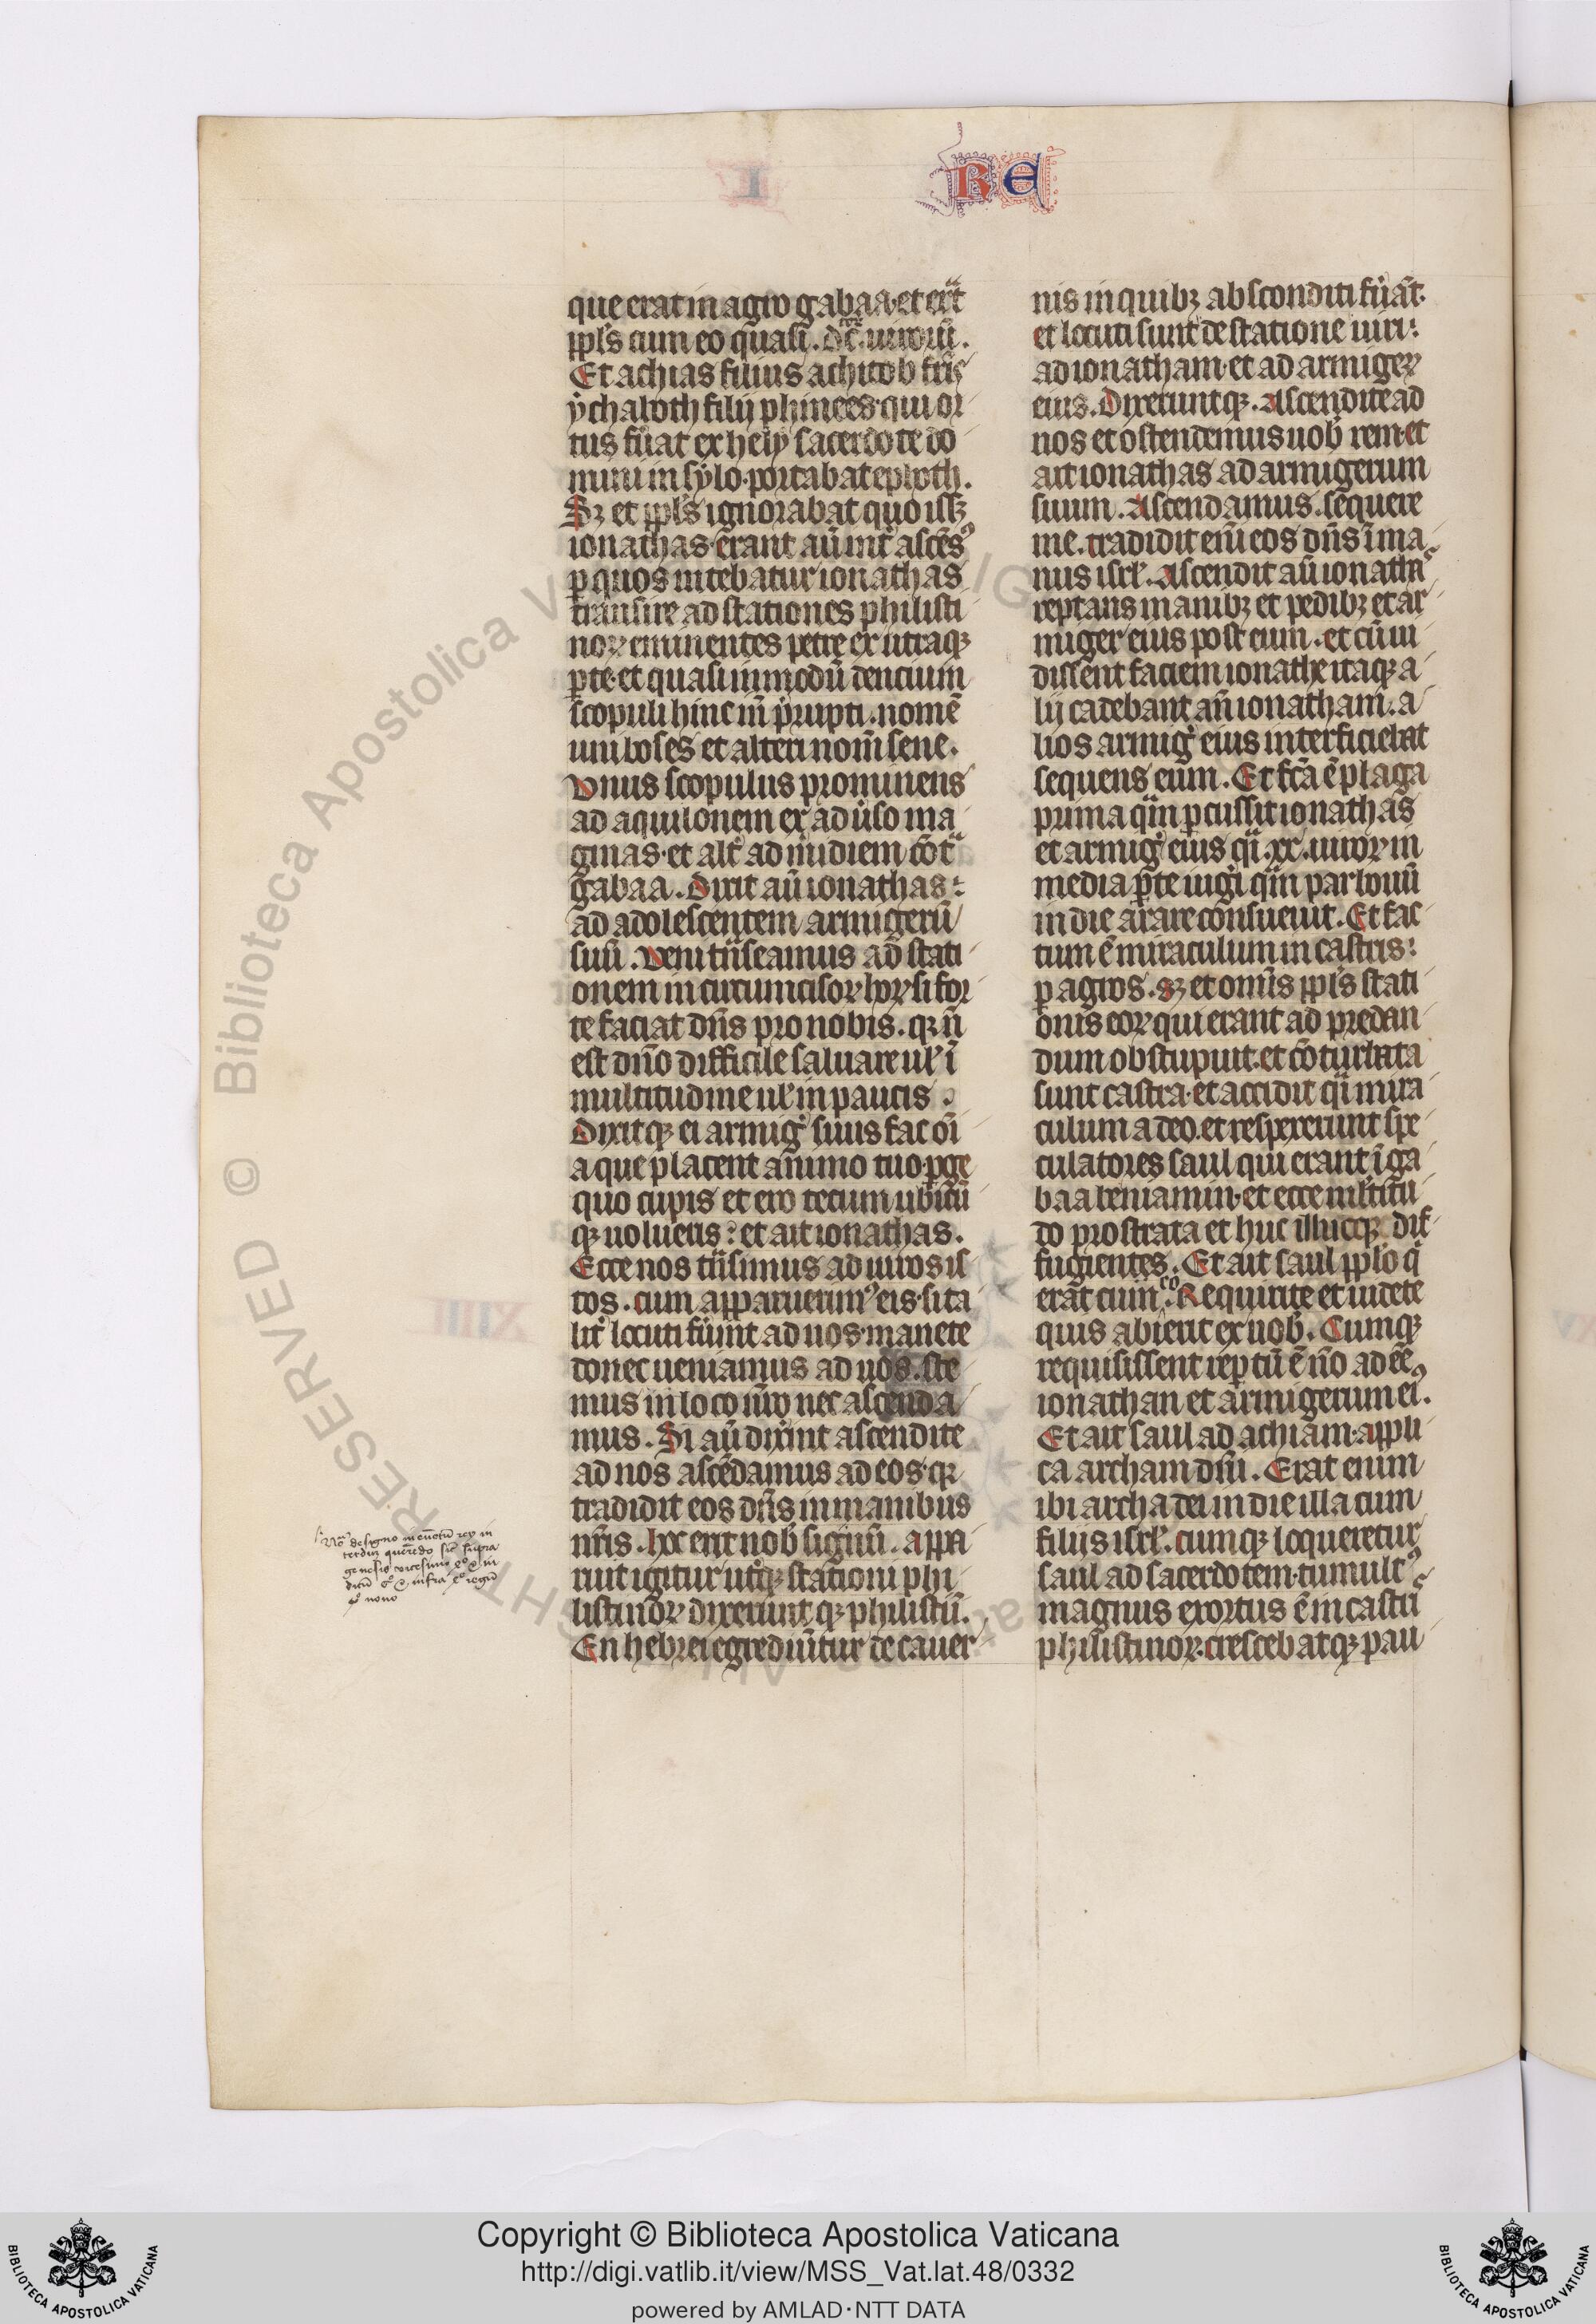 RE
que erat in agro gabaa. et erat
ppls cum eo quasi .dc. uiroru.
Et achias filius achitob fris
ychaboth filii phinees. qui or
tus fuat ex hely sacerdote do
mini in sylo. portabat ephoth.
Sz et ppls ignorabat quo issz
ionathas. erant au int asces9
p quos nitebatur ionathas
transire ad stationes philisti
noꝝ eminentes petre ex utraqz
pte. et quasi in modu dencium
scopuli hinc in prupti. nome
uni boses et alteri nom sene.
Unus scopulus prominens
ad aquilonem ex aduso ma
gmas. et alt ad midiem cot
gabaa. Dixit au ionathas:
ad adolescentem armigeru
suu. Veni tnseamus ad stati
onem incircumcisoꝝ hoꝝ si for
te faciat dns pro nobis. qz n
est dno difficile saluare ul i
multitudine ul in paucis.
Dixitqz ei armig suus fac oi
a que placent animo tuo pge
quo cupis et ero tecum ubicu
qz uolueris: et ait ionathas.
Ecce nos tnsimus ad uiros is
tos. cum apparuerim9 eis. si ta
lit locuti fuint ad nos. manete
donec ueniamus ad uos. ste
mus in loco nro nec ascenda
mus. Si au dixint ascendite
ad nos ascedamus ad eos. qz
tradidit eos dns in manibus
nris. hoc erit nob signu. appa
ruit igitur utqz stationi phi
listinoꝝ dixeruntqz philistii.
En hebrei egrediuntur de cauer
nis in quibz absconditi fuat.
et locuti sunt de statione uiri:
ad ionatham. et ad armigeꝝ
eius. Dixeruntqz. Ascendite ad
nos et ostendemus uob rem. et
ait ionathas ad armigerum
suum. Ascendamus. sequere
me. tradidit eni eos dns i ma
nus isrl. Ascendit au ionathas
reptans manibz et pedibz et ar
miger eius post eum. et cu ui
dissent faciem ionathe itaqz a
lii cadebant an ionatham. a
lios armig eius interficiebat
sequens eum. Et fca e plaga
prima qm pcussit ionathas
et armig eius qi .xx. uiroꝝ in
media pte iugi qm par bouu
in die arare consueuit. Et fac
tum e miraculum in castris:
p agros. sz et omis ppls stati
onis eoꝝ qui erant ad predan
dum obstupuit. et coturbata
sunt castra. et accidit qi mira
culum a deo. et respexerunt spe
culatores saul qui erant i ga
baa beniamin. et ecce multitu
do prostrata et huc illucqz dif
fugientes. Et ait saul pplo q
erat cum eo. Requirite et uidete
quis abierit ex uob. Cumqz
requisissent reptu e no adee
ionathan et armigerum ei9.
Et ait saul ad achiam. appli
ca archam dni. Erat enim
ibi archa dei in die illa cum
filiis isrl. cumqz loqueretur
saul ad sacerdotem. tumult9
magnus exortus e in castri
philistinoꝝ. crescebatqz pau
No de signo
genesis
nono
Copyright © Biblioteca Apostolica Vaticana
http://digi.vatlib.it/view/MSS_Vat.lat.48/0332
powered by AMLAD·NTT DATA
BIBLIOTECA APOSTOLICA VATICANA
BIBLIOTECA APOSTOLICA VATICANA